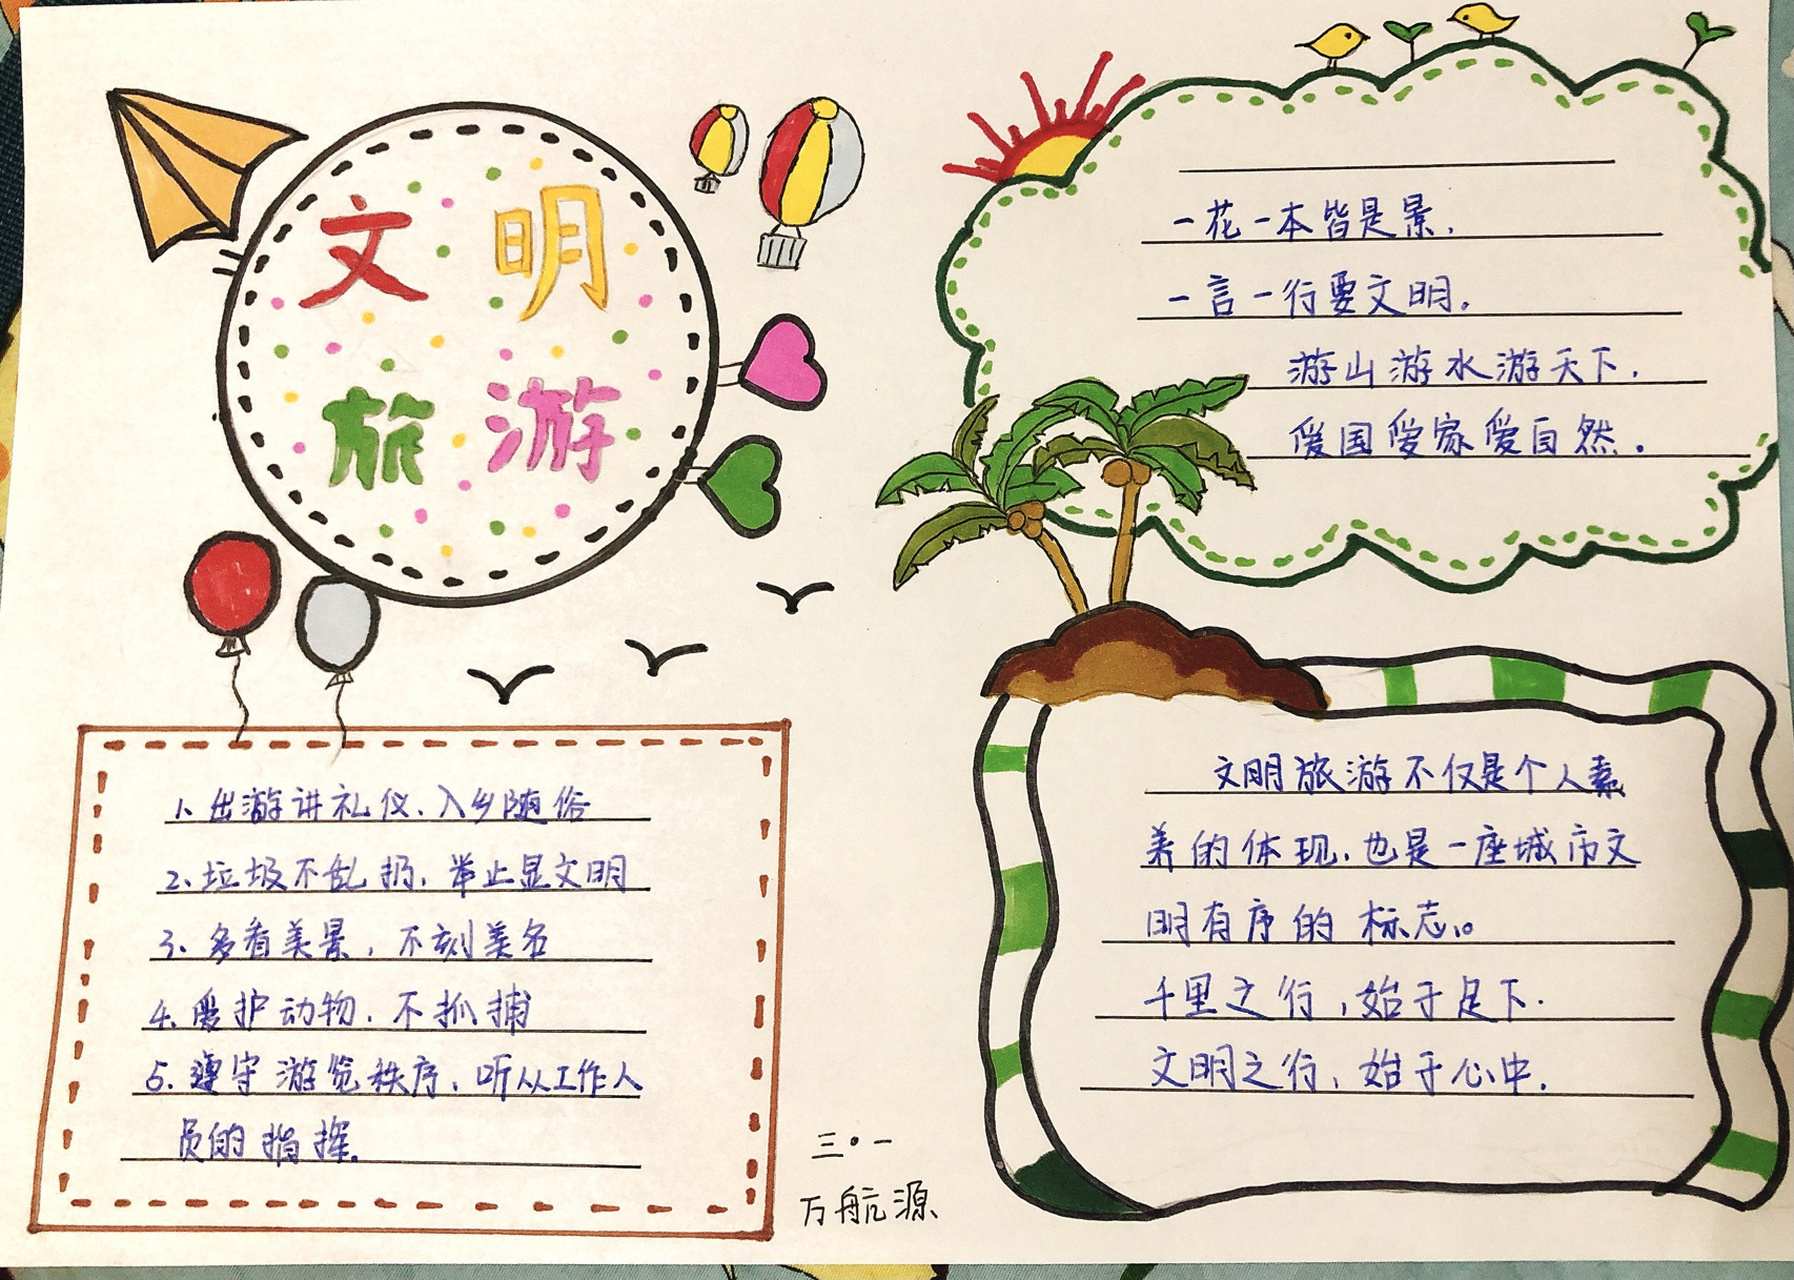 文明
旅游
一花一本皆是景.
一言一行要文明。
游山游水游天下.
爱国爱家爱自然.
1、出游讲礼仪、入乡随俗
2、垃圾不乱扔,举止显文明
3、多看美景,不刻美名
4、爱护动物,不抓捕
5、遵守游览秩序,听从工作人
员的指挥.
文明旅游不仅是个人素
养的体现,也是一座城市文
明有序的标志。
千里之行,始于足下.
文明之行,始于心中.
三·一
万航源